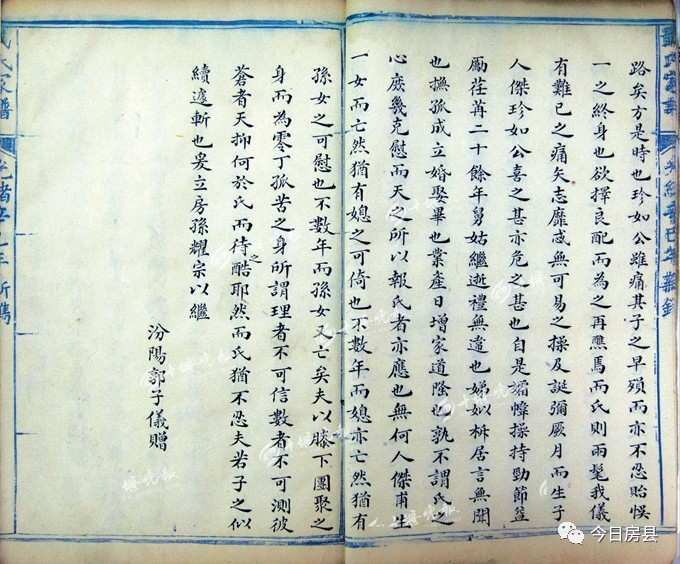 路矣方是時也珍如公雖痛其子之早殞而亦不忍貽悞
一之終身也欲擇良配而為之再醮焉而氏則兩髦我儀
有難已之痛矢志靡慝無可易之操及誕彌厥月而生子
人傑珍如公喜之甚亦危之甚也自是孀幃操持勁節益
勵荏苒二十餘年舅姑繼逝禮無違也娣姒柝居言無閒
也撫孤成立婚娶畢也業產日增家道隆也孰不謂氏之
心庶幾克慰而天之所以報氏者亦應也無何人傑甫生
一女而亡然猶有媳之可倚也不數年而媳亦亡然猶有
孫女之可慰也不數年而孫女又亡矣夫以膝下團聚之
身而為零丁孤苦之身所謂理者不可信數者不可測彼
蒼者天抑何於氏而待之酷耶然而氏猶不忍夫若子之似
續遽斬也爰立房孫耀宗以繼
汾陽郭子儀贈
氏家譜
年新鐫
今日房县